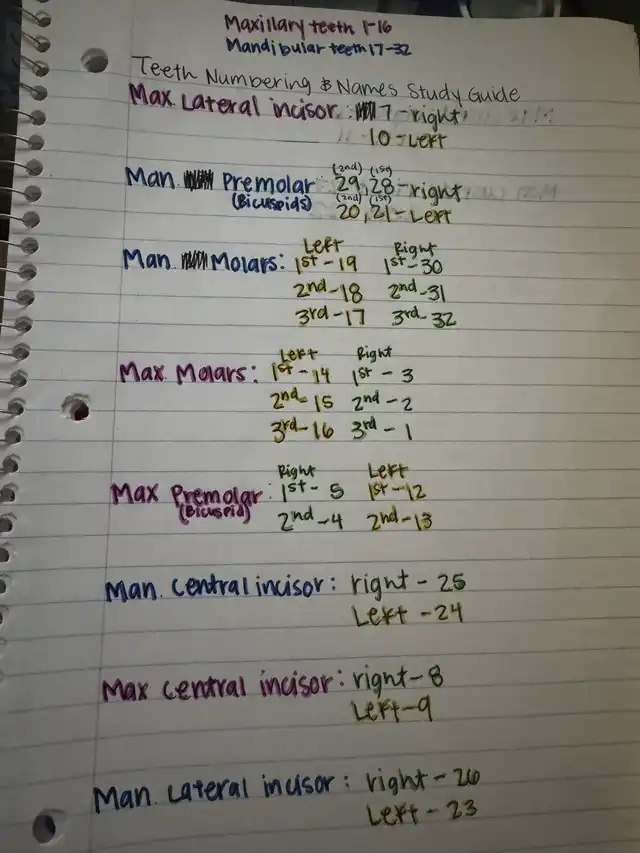 Maxillary teeth 1-16
Mandibular teeth 17-32
Teeth Numbering & Names Study Guide
Max. Lateral incisor: 7-right
10-Left
Man Premolar (2nd) 29, (1st) 28-right
(Bicuspids) (2nd) 20, (1st) 21-Left
Left Right
Man Molars: 1st-19 1st-30
2nd-18 2nd-31
3rd-17 3rd-32
Left Right
Max Molars: 1st-14 1st-3
2nd-15 2nd-2
3rd-16 3rd-1
Right Left
Max Premolar: 1st-5 1st-12
(Bicuspid) 2nd-4 2nd-13
Man. Central incisor: right-25
Left-24
Max Central incisor: right-8
Left-9
Man. Lateral incisor: right-26
Left-23